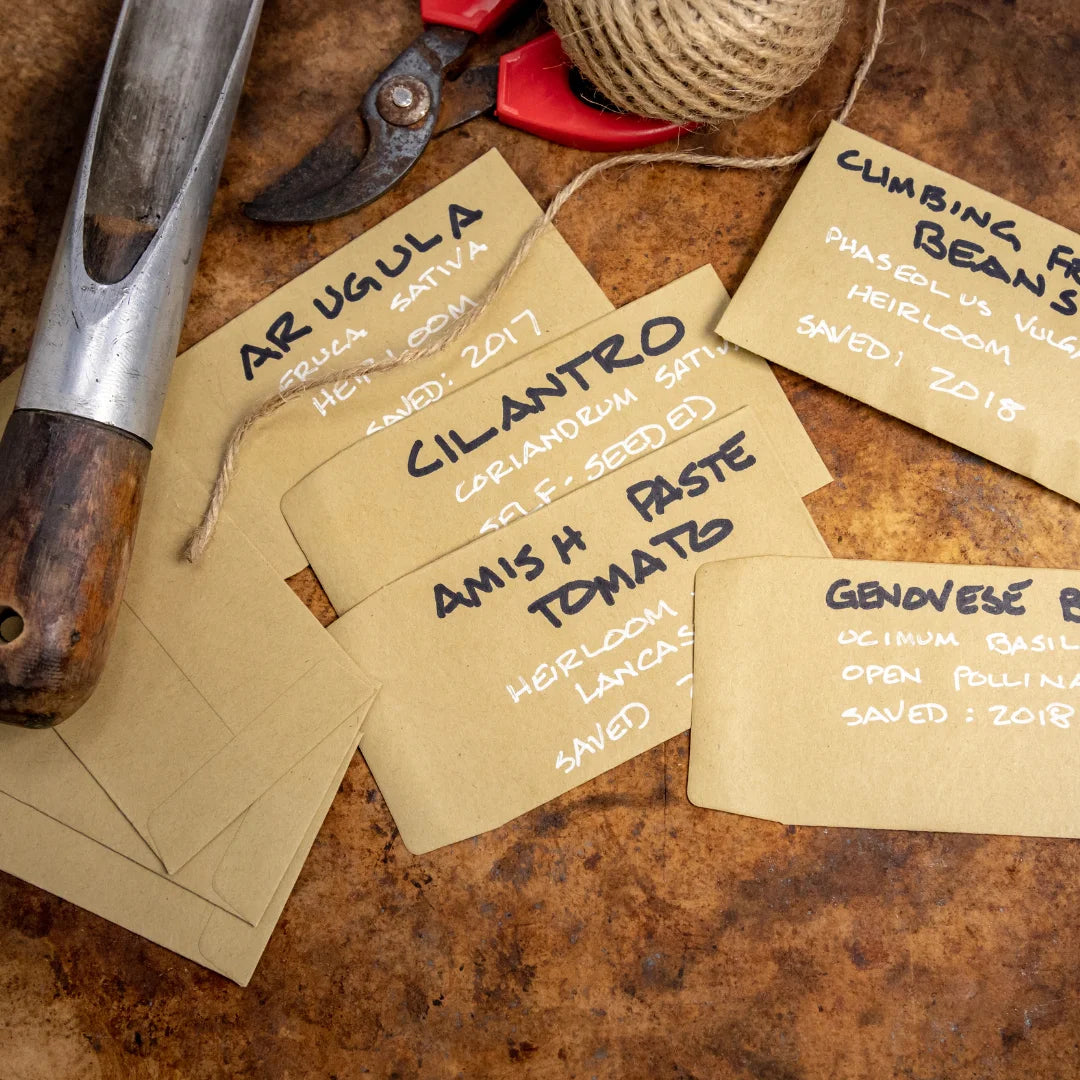 ARUGULA
ERUCA SATIVA
HEIRLOOM
SAVED: 2017
CILANTRO
CORIANDRUM
SELF-SEEDED
AMISH PASTE
TOMATO
HEIRLOOM
SAVED
CLIMBING
BEANS
PHASEOLUS
HEIRLOOM
SAVED: 2018
GENOVESE
OCIMUM BASIL
OPEN
SAVED: 2018